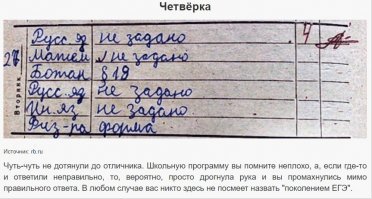 Четвёрка
Русс яз не задано 4
27 Матем не задано
Вторник
Ботан § 19
Русс яз не задано
Ин.яз не задано
Физ-ра форма
Источник: rb.ru
Чуть-чуть не дотянули до отличника. Школьную программу вы помните неплохо, а, если где-то
и ответили неправильно, то, вероятно, просто дрогнула рука и вы промахнулись мимо
правильного ответа. В любом случае вас никто здесь не посмеет назвать "поколением ЕГЭ".